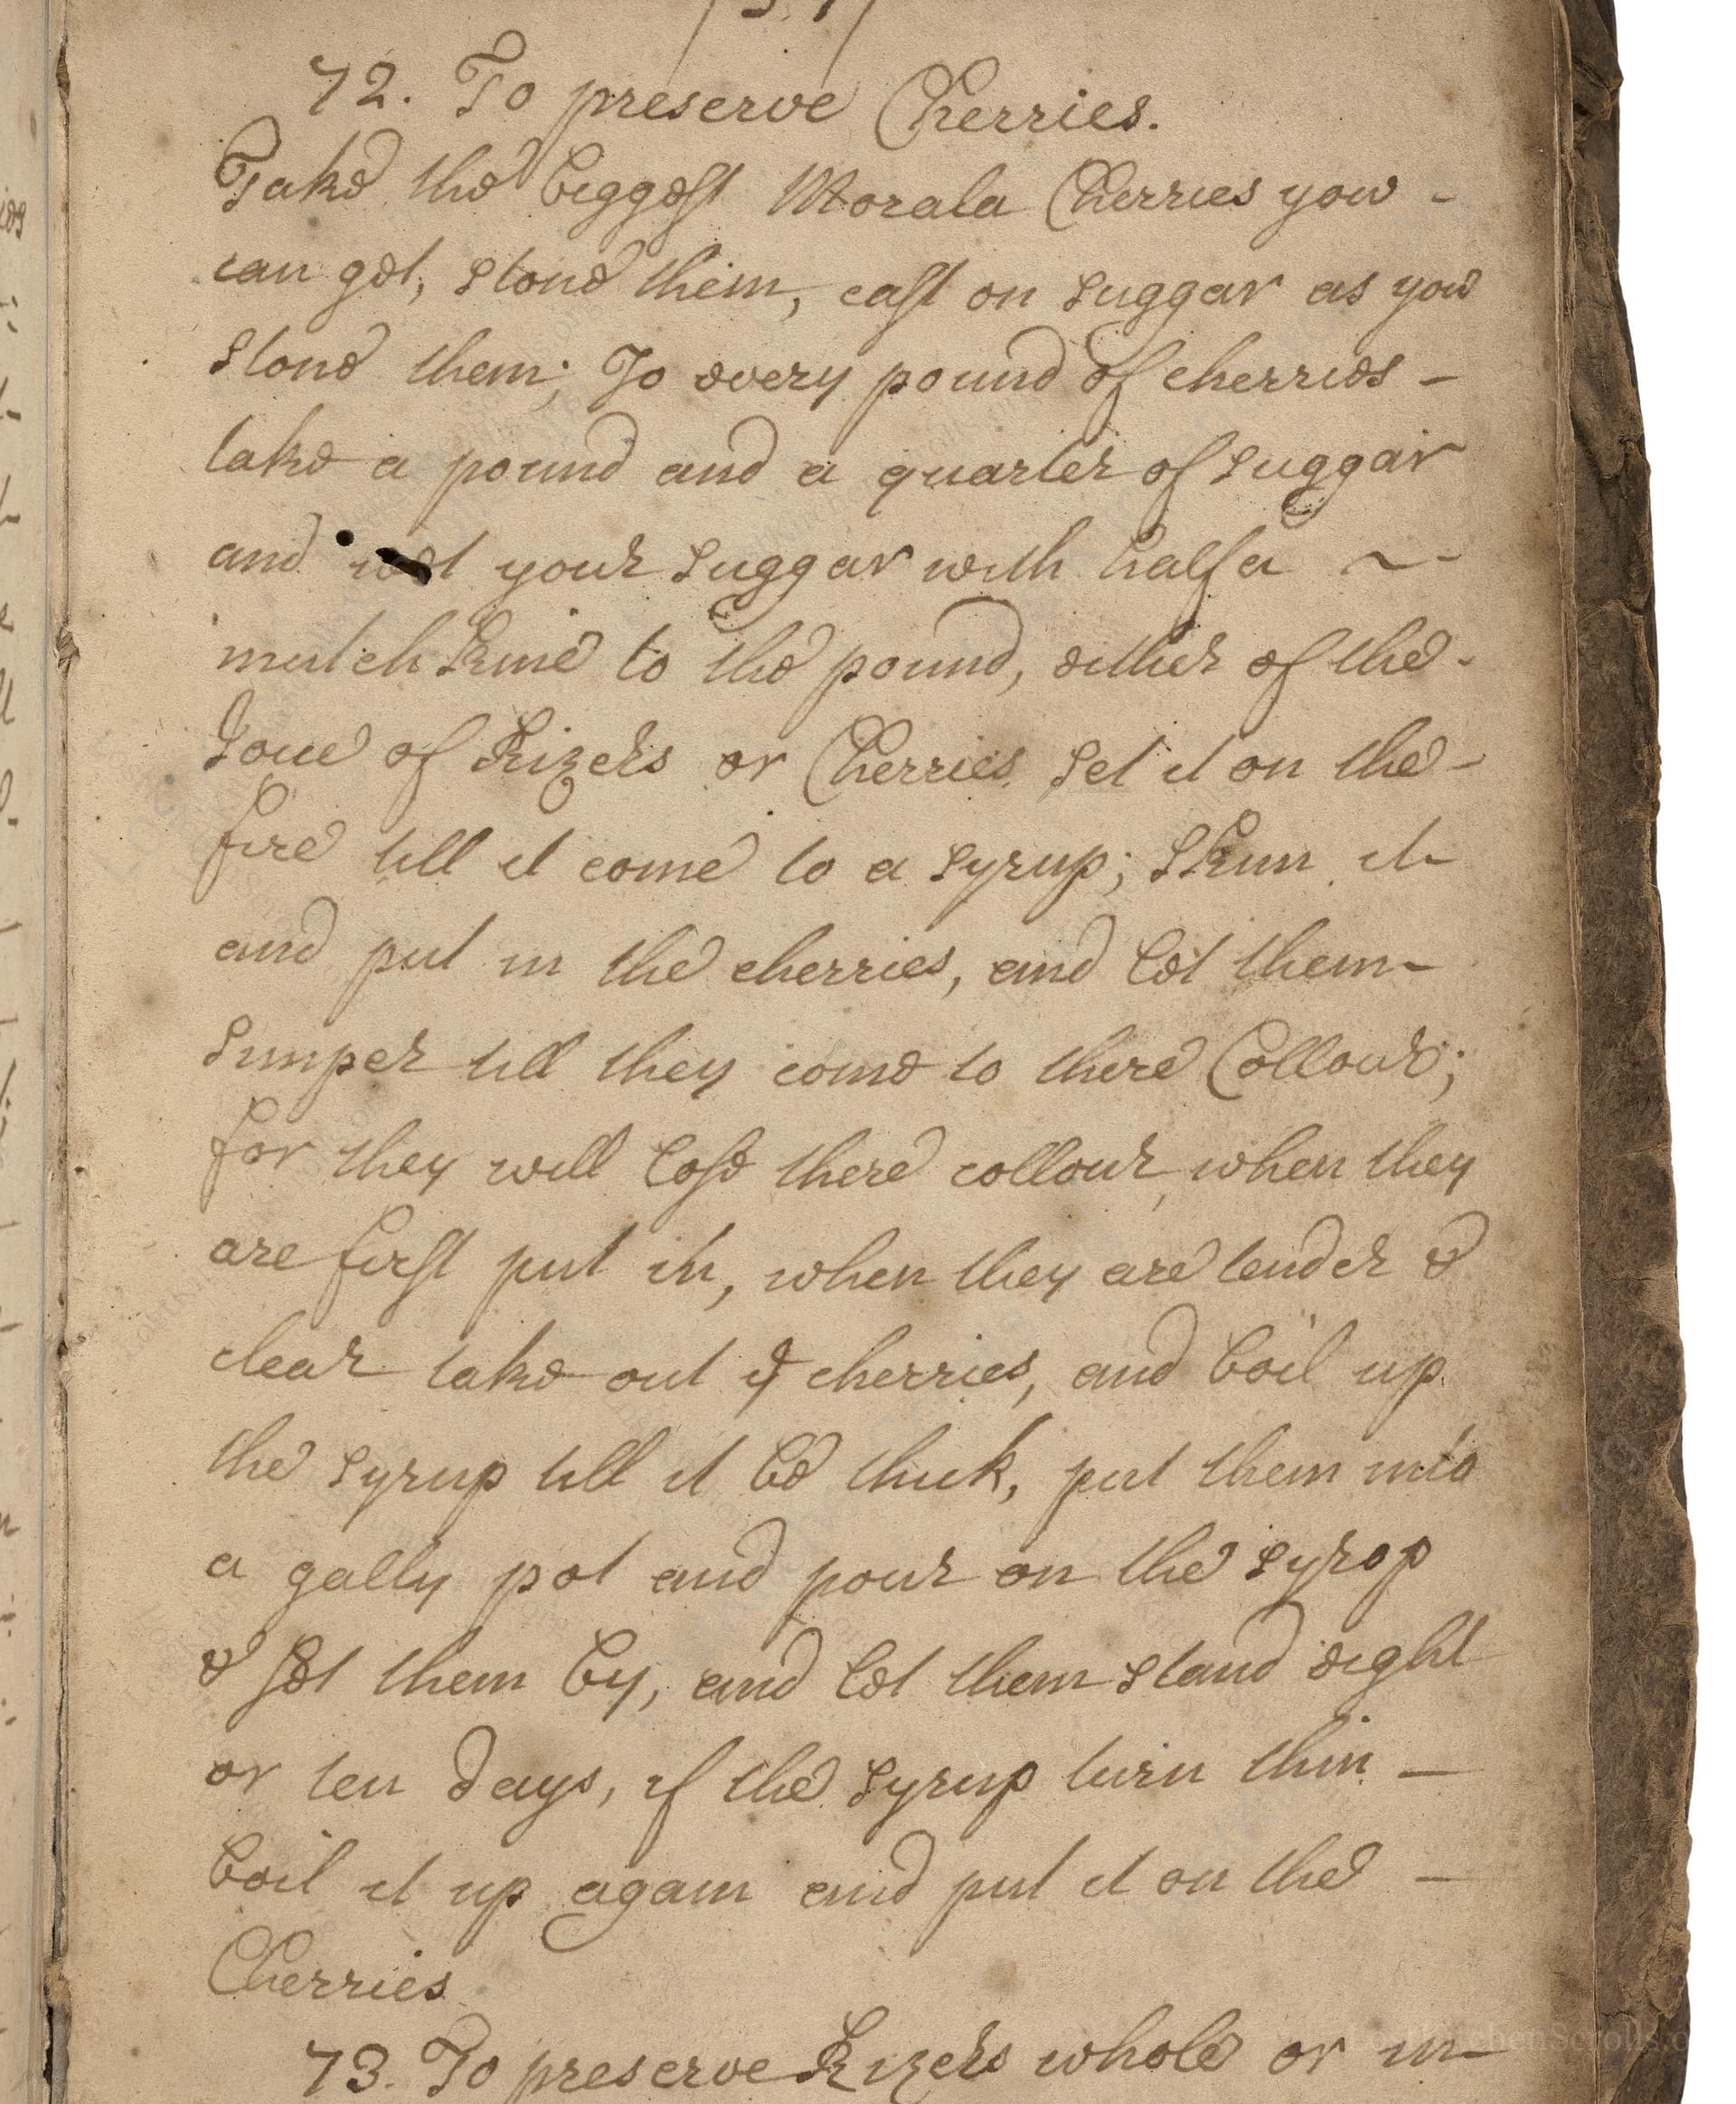 72. To preserve Cherries.
Take the biggest Morala Cherries you -
can get, stone them, cast on suggar as you
stone them; To every pound of cherries -
take a pound and a quarter of suggar
and wet your suggar with half a ~ -
mutchkine to the pound, either of the -
Joue of Rizers or Cherries set it on the -
fire till it come to a syrup; skum it -
and put in the cherries, and let them -
simper till they come to there Collour;
for they will lose there collour, when they
are first put in, when they are tender &
clear take out ye cherries, and boil up
the syrup till it be thick, put them into
a gally pot and pour on the syrop
& set them by, and let them stand eight
or ten days, if the syrup turn thin —
boil it up again and put it on the —
Cherries
73. To preserve Rizers whole or in -